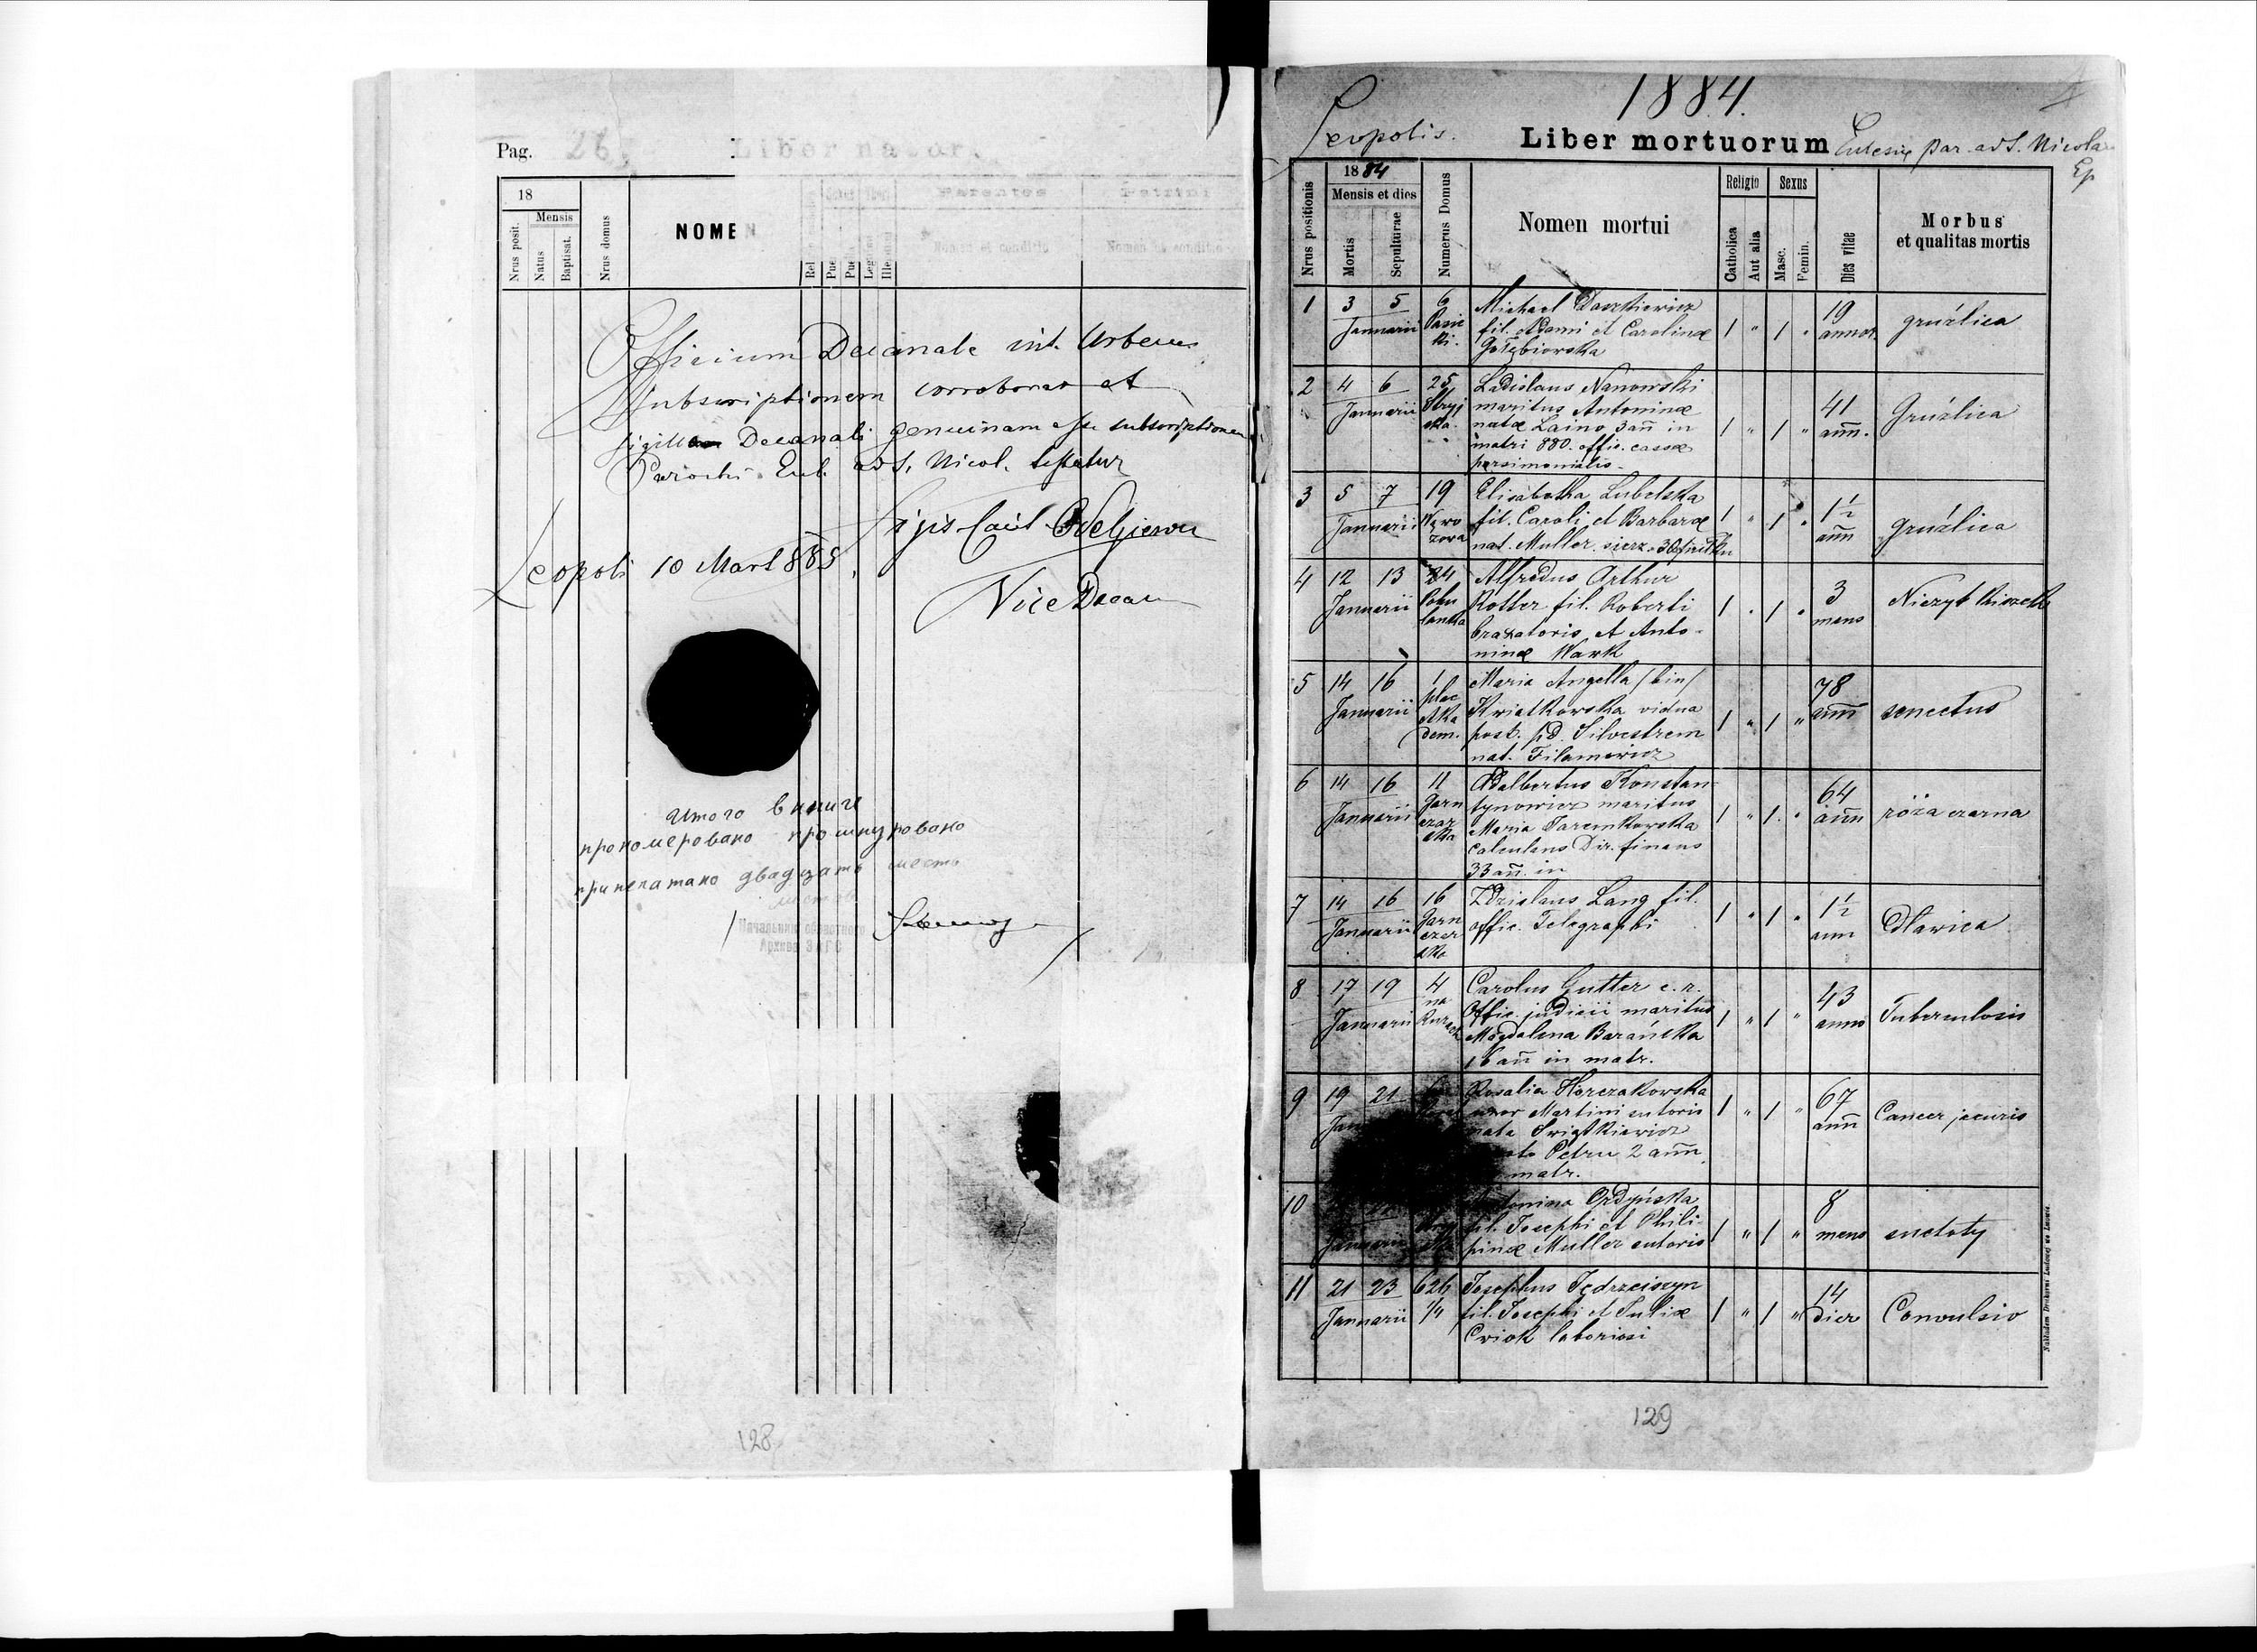 Pag. 26
Liber nator.
18
Mensis
Nrus posit.
Natus
Baptisat.
Nrus domus
NOMEN
Parentes
Patrini
Nomen et conditio
Nomen et conditio
Officium Decanale int. Urbem
Subscriptionem corroborat et
Decanali genuinam esse subscriptionem
Parochi Eccl. ad S. Nicol. testatur
Leopoli 10 Mart 885
Vice Decan
Итого в книге
прономеровано прошнуровано
припечатано двадцать шесть
листов
Начальник областного
Архива ЗАГС
128
1884.
Leopolis.
Liber mortuorum Ecclesiæ par. ad S. Nicola
Ep
Nrus positionis
1884
Mensis et dies
Mortis
Sepulturae
Numerus Domus
Nomen mortui
Religio
Catholica
Aut alia
Sexus
Masc.
Femin.
Dies vitae
Morbus
et qualitas mortis
1 3 5 6 Michael Daszkiewicz 19
Januarii fil. Adami et Carolinæ 1 " 1 " annor. gruźlica
Gołębiowska
2 4 6 25 Ladislaus Nanowski
Januarii Stryj maritus Antoninæ 41
ska natæ Laino 3 añ in 1 " 1 " ann. Gruźlica
matri 880. offic. cassæ
parsimonialis
3 5 7 19 Elisabetha Lubelska 1½
Januarii fil. Caroli et Barbaræ 1 " 1 " ann gruźlica
zowa nat. Muller. sierz. 30
4 12 13 24 Alfredus Arthur 3
Januarii Kotter fil. Roberti 1 " 1 " mens Nieżyt kiszek
braxatoris et Anto-
ninæ Wark
5 14 16 1 Maria Angella /bin/ 78
Januarii plac Kwiatkowska vidua 1 " 1 " ann senectus
Aka post. pd. Silvestrem
dem. nat. Filamowicz
6 14 16 11 Adalbertus Konstan- 64
Januarii Garn tynowicz maritus 1 " 1 " ann róża czarna
czar Maria Taremkowska
ska calculans Dir. finans
33 añ. in
7 14 16 16 Zdzislaus Lang fil. 1½
Januarii Garn offic. Telegraphi 1 " 1 " ann Dławica
czar
ska
8 17 19 4 Carolus Gutter c. r. 43
Januarii na Offic. judicii maritus 1 " 1 " anno Tuberculosis
Rurach Magdalena Barańska
16 añ in matr.
9 19 21 Rosalia Horczakowska 67
Jan uxor Martini sutoris 1 " 1 " ann Cancer jecuris
nata Swiątkiewicz
Petru 2 ann
matr.
10 Antonina Ordyńska 8
Januarii fil. Josephi et Phili- 1 " 1 " mens suchoty
pinæ Muller sutoris
11 21 23 624 Josephus Jędrzeiszyn 14
Januarii 1/4 fil. Josephi et Juliæ 1 " 1 " dier Convulsio
Cwiok laboriosi
Nakładem Drukarni Ludowej we Lwowie.
129